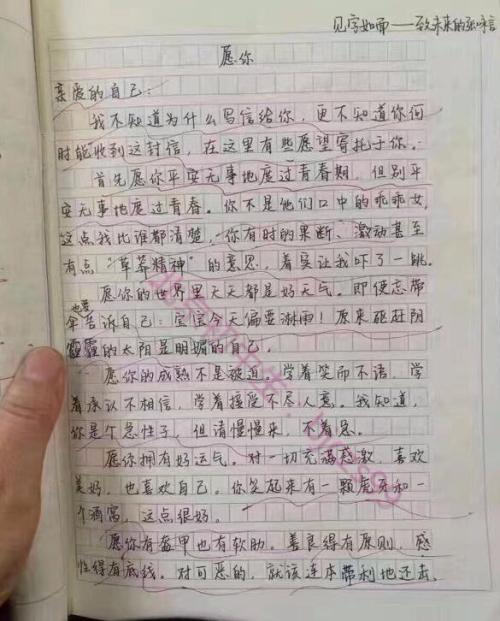 见字如面——致未来的张咏言
愿你
亲爱的自己：
我不知道为什么写信给你，更不知道你何
时能收到这封信，在这里有些愿望寄托于你。
首先愿你平安无事地度过青春期，但别平
安无事地度过青春。你不是他们口中的乖乖女，
这点我比谁都清楚，你有时的果断、激动甚至
有点“草莽精神”的意思，着实让我吓了一跳。
愿你的世界里天天都是好天气。即使忘带
也要
伞告诉自己：宝宝今天偏要淋雨！原来驱赶阴
霾的太阳是明媚的自己。
愿你的成熟不是被迫。学着笑而不语，学
着承认不相信，学着接受不尽人意。我知道，
你是个急性子，但请慢慢来，不着急。
愿你拥有好运气。对一切充满感激，喜欢
美好，也喜欢自己。你笑起来有一颗虎牙和一
个酒窝，这点很好。
愿你有盔甲也有软肋。善良得有原则，感
性得有底线。对可恶的，就该连本带利地还击。